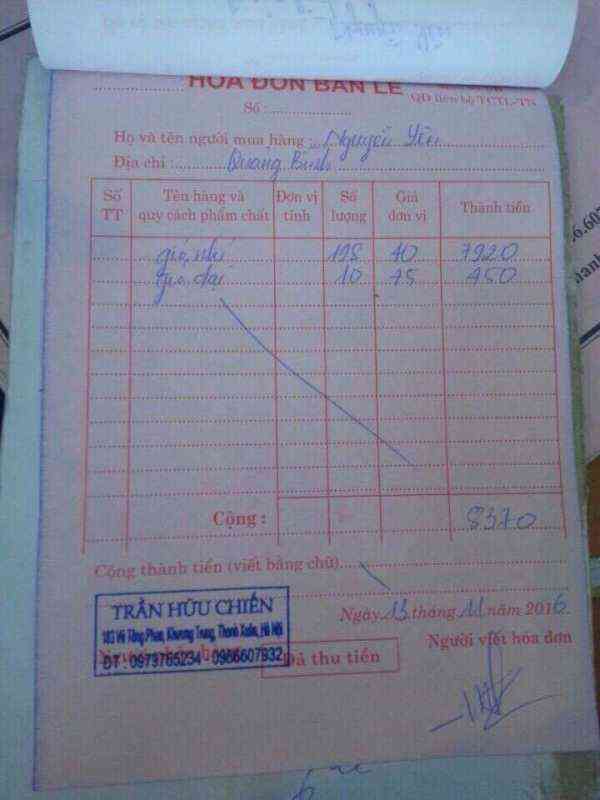 HÓA ĐƠN BÁN LẺ
QĐ liên bộ TCTL-TN
Số :
Họ và tên người mua hàng : Nguyễn Yên
Địa chỉ : Quảng Bình
Số TT Tên hàng và quy cách phẩm chất Đơn vị tính Số lượng Giá đơn vị Thành tiền
giỏ nhí 198 40 7920
giỏ dài 10 75 450
Cộng : 8370
Cộng thành tiền (viết bằng chữ)
Ngày 13 tháng 11 năm 2016
TRẦN HỮU CHIẾN
Khương Trung, Thanh Xuân, Hà Nội
ĐT : 0973765234 - 0966607932
Người viết hóa đơn
Đã thu tiền